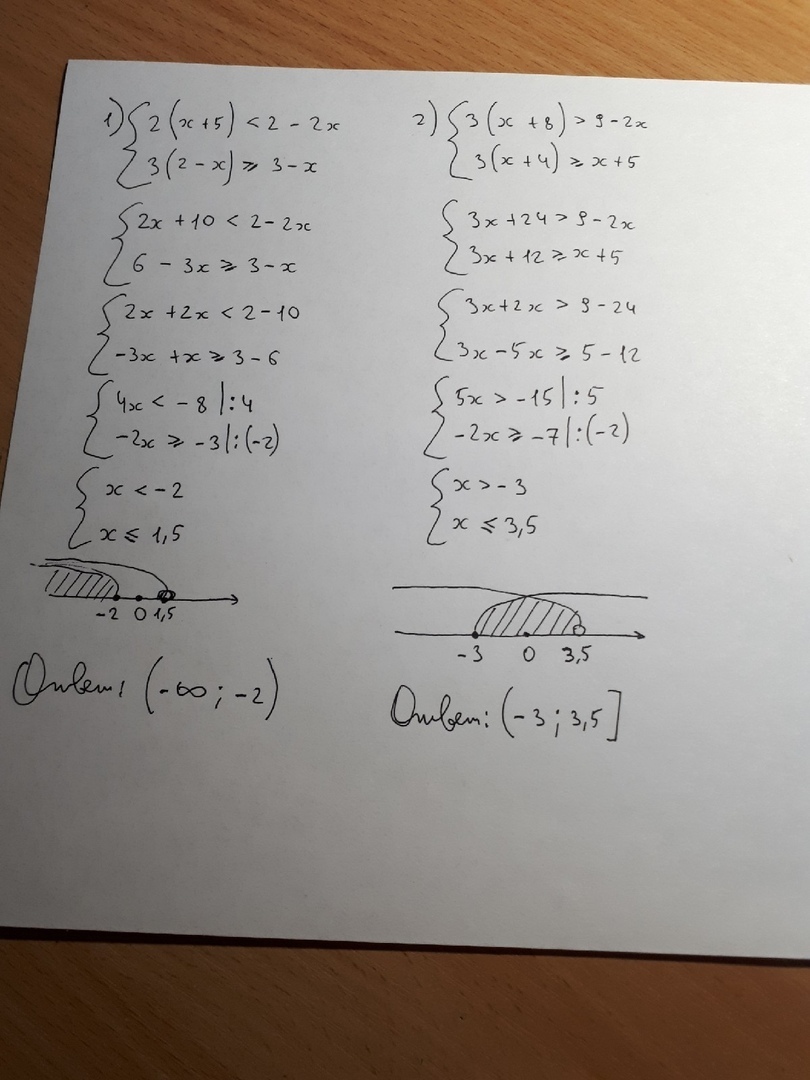 1) { 2(x+5) < 2 - 2x
3(2-x) ⩾ 3-x
{ 2x + 10 < 2 - 2x
6 - 3x ⩾ 3 - x
{ 2x + 2x < 2 - 10
-3x + x ⩾ 3 - 6
{ 4x < -8 |:4
-2x ⩾ -3 |:(-2)
{ x < -2
x ⩽ 1,5
-2 0 1,5
Ответ: (-∞; -2)
2) { 3(x + 8) > 9 - 2x
3(x + 4) ⩾ x + 5
{ 3x + 24 > 9 - 2x
3x + 12 ⩾ x + 5
{ 3x + 2x > 9 - 24
3x - 5x ⩾ 5 - 12
{ 5x > -15 |:5
-2x ⩾ -7 |:(-2)
{ x > -3
x ⩽ 3,5
-3 0 3,5
Ответ: (-3; 3,5]